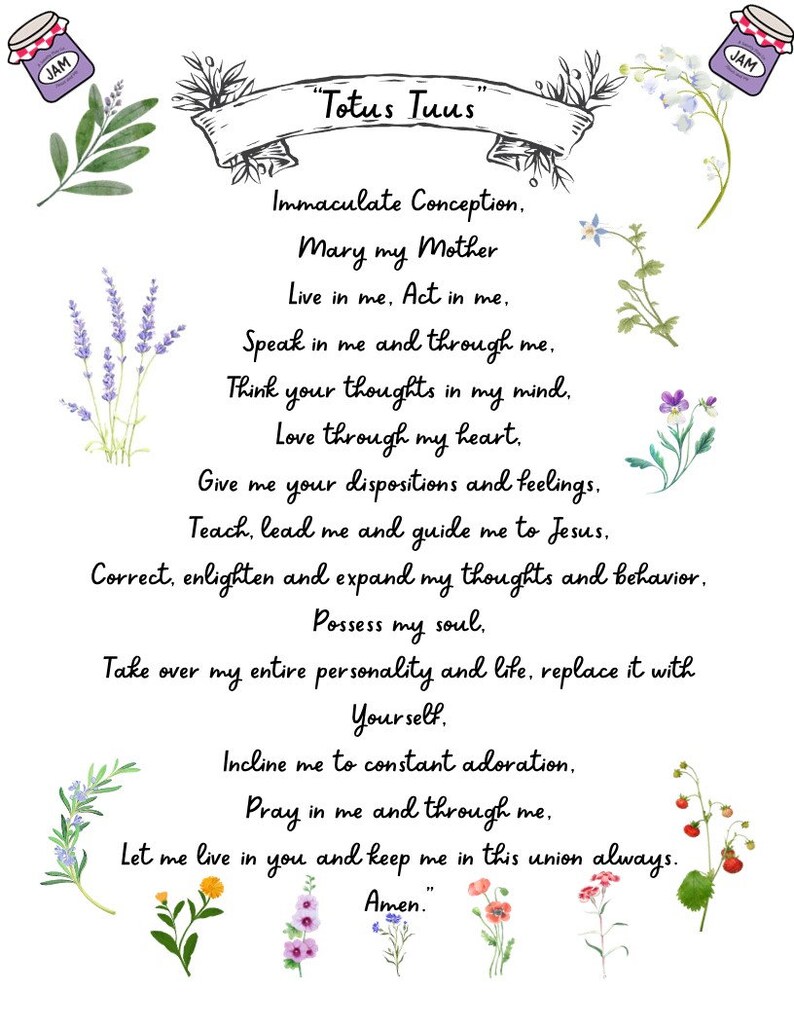 JAM
JAM
“Totus Tuus”
Immaculate Conception,
Mary my Mother
Live in me, Act in me,
Speak in me and through me,
Think your thoughts in my mind,
Love through my heart,
Give me your dispositions and feelings,
Teach, lead me and guide me to Jesus,
Correct, enlighten and expand my thoughts and behavior,
Possess my soul,
Take over my entire personality and life, replace it with
Yourself,
Incline me to constant adoration,
Pray in me and through me,
Let me live in you and keep me in this union always.
Amen.”